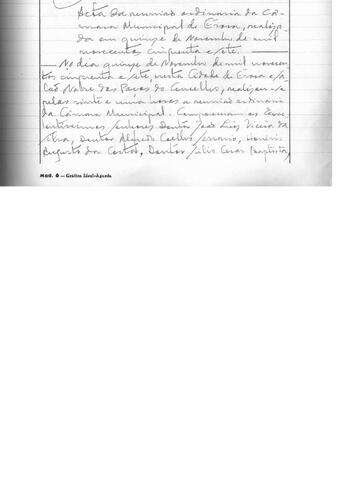 Acta da reunião ordinaria da Câ-
mara Municipal de Évora, realiza-
da em quinze de Novembro de mil
novecentos cinquenta e sete.
No dia quinze de Novembro de mil novecen-
tos cinquenta e sete, nesta Cidade de Évora e Sa-
lão Nobre dos Paços do Concelho, realizou-se
pelas vinte e uma horas a reunião ordinaria
da Câmara Municipal. Compareceram os Exce-
lentissimos Senhores Doutor João Luis Vieira da
Silva, Doutor Alfredo Coelho
Augusto da Costa, Doutor Julio Cesar Baptista,
Mod. 6 — Gráfica Ideal-Agueda